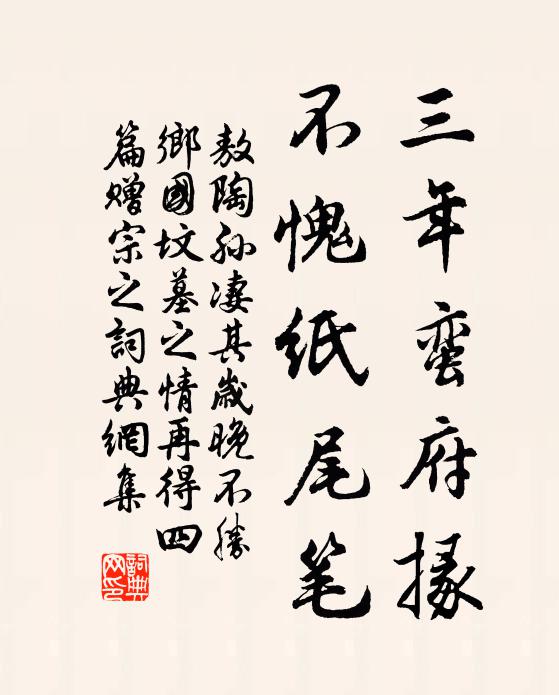 三年蛮府掾
不愧纸尾笔
敖陶孙凄其歳晚不勝
鄉國坟墓之情再得四
篇赠宗之詞典網集
詞典
网印